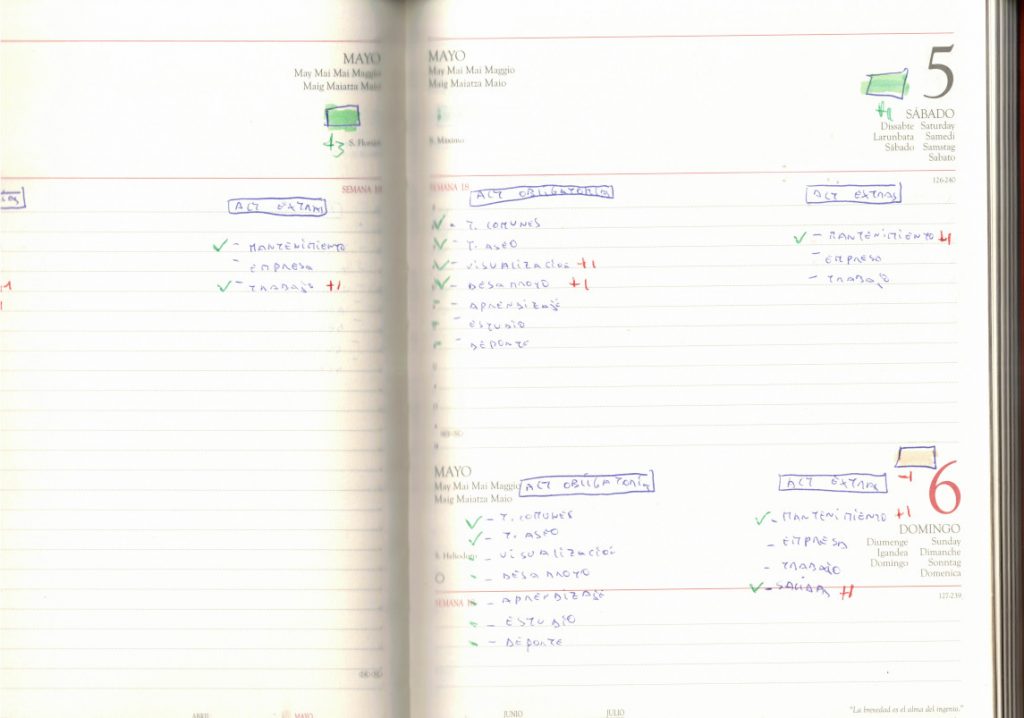 MAYO
May Mai Mai Maggio
Maig Maiatza Maio
+3
S. Florián
SEMANA 18
ACT EXTRAS
✓ - MANTENIMIENTO
- EMPRESA
✓ - TRABAJO +1
ABRIL
MAYO
MAYO
May Mai Mai Maggio
Maig Maiatza Maio
S. Máximo
5
+1
SÁBADO
Dissabte Saturday
Larunbata Samedi
Sábado Samstag
Sabato
SEMANA 18
126-240
ACT OBLIGATORIA
✓ - T. COMUNES
✓ - T. ASEO
✓ - VISUALIZACIÓN +1
✓ - DESARROYO +1
- APRENDIZAJE
- ESTUDIO
- DEPORTE
ACT EXTRAS
✓ - MANTENIMIENTO +1
- EMPRESA
- TRABAJO
MAYO
May Mai Mai Maggio
Maig Maiatza Maio
S. Heliodoro
SEMANA
ACT OBLIGATORIA
✓ - T. COMUNES
✓ - T. ASEO
- VISUALIZACIÓN
- DESARROYO
- APRENDIZAJE
- ESTUDIO
- DEPORTE
ACT EXTRAS
✓ - MANTENIMIENTO +1
- EMPRESA
- TRABAJO
✓ - SALIDAS +1
-1
6
DOMINGO
Diumenge Sunday
Igandea Dimanche
Domingo Sonntag
Domenica
127-239
JUNIO
JULIO
"La brevedad es el alma del ingenio."